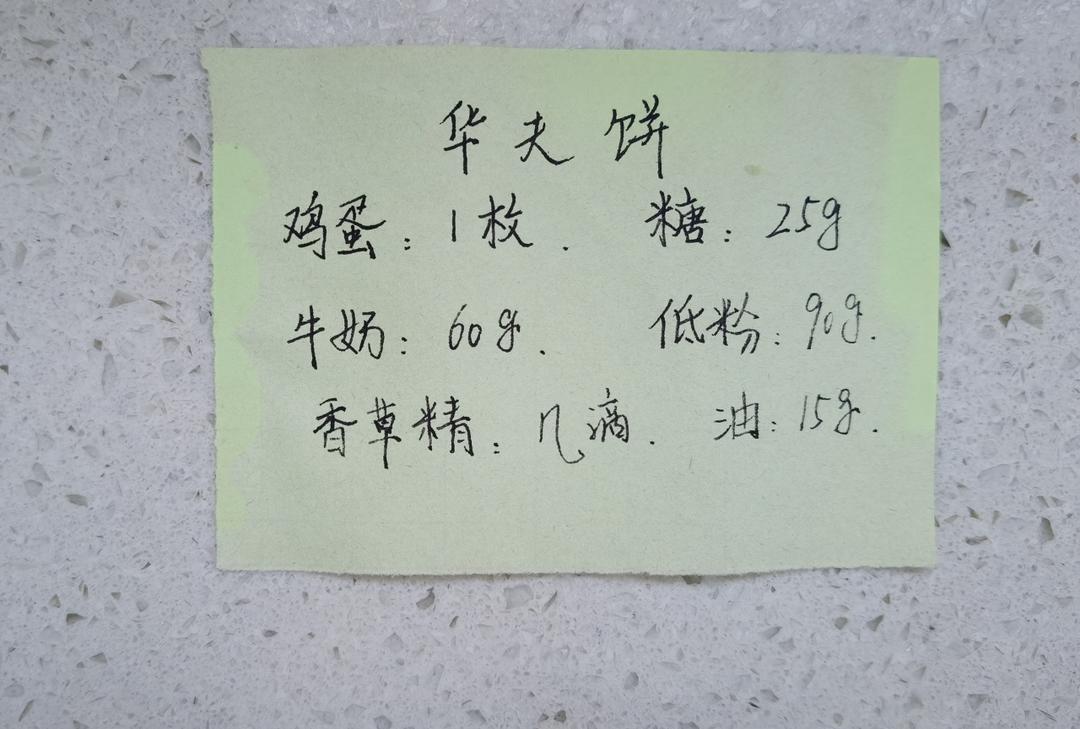 华夫饼
鸡蛋：1枚． 糖：25g
牛奶：60g． 低粉：90g．
香草精：几滴． 油：15g．